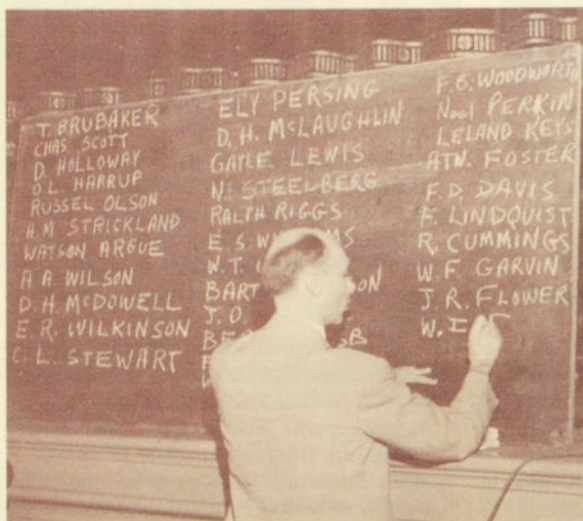 T. BRUBAKER
CHAS SCOTT
D. HOLLOWAY
O.L. HARRUP
RUSSEL OLSON
H.M STRICKLAND
WATSON ARGUE
A A. WILSON
D. H. McDOWELL
E.R. WILKINSON
C. L. STEWART
ELY PERSING
D. H. McLAUGHLIN
GAYLE LEWIS
N. STEELBERG
RALPH RIGGS
E. S
W. T.
BART
J. O.
F. B. WOODWORTH
Noel PERKIN
LELAND KEYS
ATW. FOSTER
F. D. DAVIS
F. LINDQUIST
R. CUMMINGS
W. F. GARVIN
J. R. FLOWER
W.